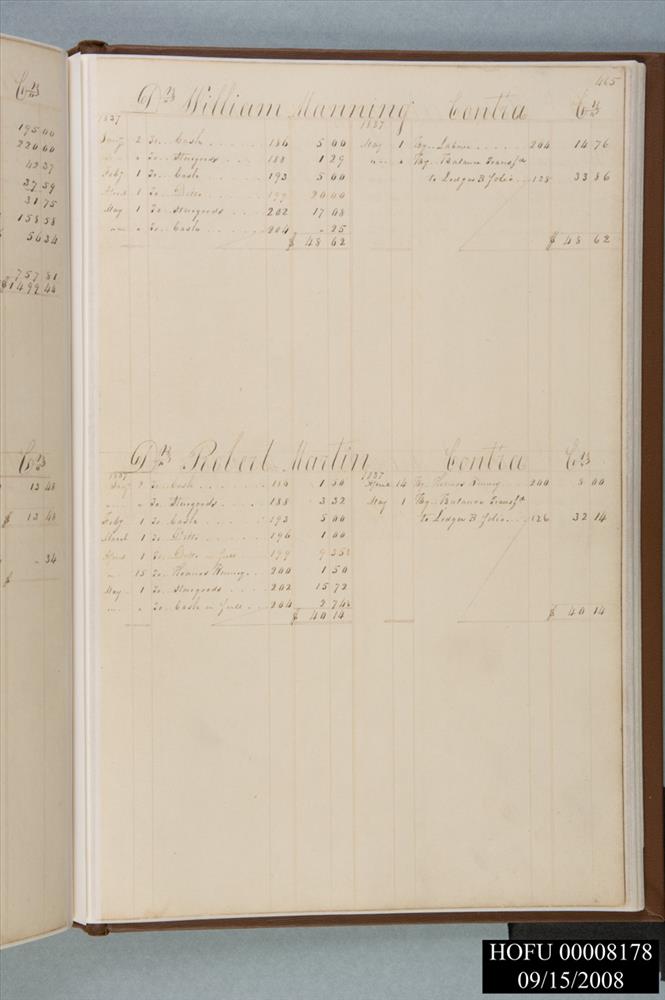 Crs
195 00
220 00
42 37
27 59
31 75
158 58
56 34
757 81
$1499 44
Crs
13 48
$ 13 48
" 34
$
465
Drs William Manning Contra Crs
1837 1837
Jany 2 To Cash 186 5 00 May 1 By Labour 204 14 76
" " " To Storegoods 188 1 29 " " " By Balance Transfd
Feby 1 To Cash 193 5 00 to Ledger B folio 128 33 86
April 1 To Ditto 199 20 00
May 1 To Storegoods 202 17 08
" " " To Cash 204 " 25
$ 48 62 $ 48 62
Drs Robert Martin Contra Crs
1837 1837
Jany 2 To Cash 186 1 50 April 14 By Thomas Kinney 200 8 00
" " " To Storegoods 188 3 32 May 1 By Balance Transfd
Feby 1 To Cash 193 5 00 to Ledger B folio 126 32 14
March 1 To Ditto 196 1 00
April 1 To Ditto in full 199 9 35½
" 15 To Thomas Kinney 200 1 50
May 1 To Storegoods 202 15 72
" " " To Cash in full 204 2 74½
$ 40 14 $ 40 14
HOFU 00008178
09/15/2008